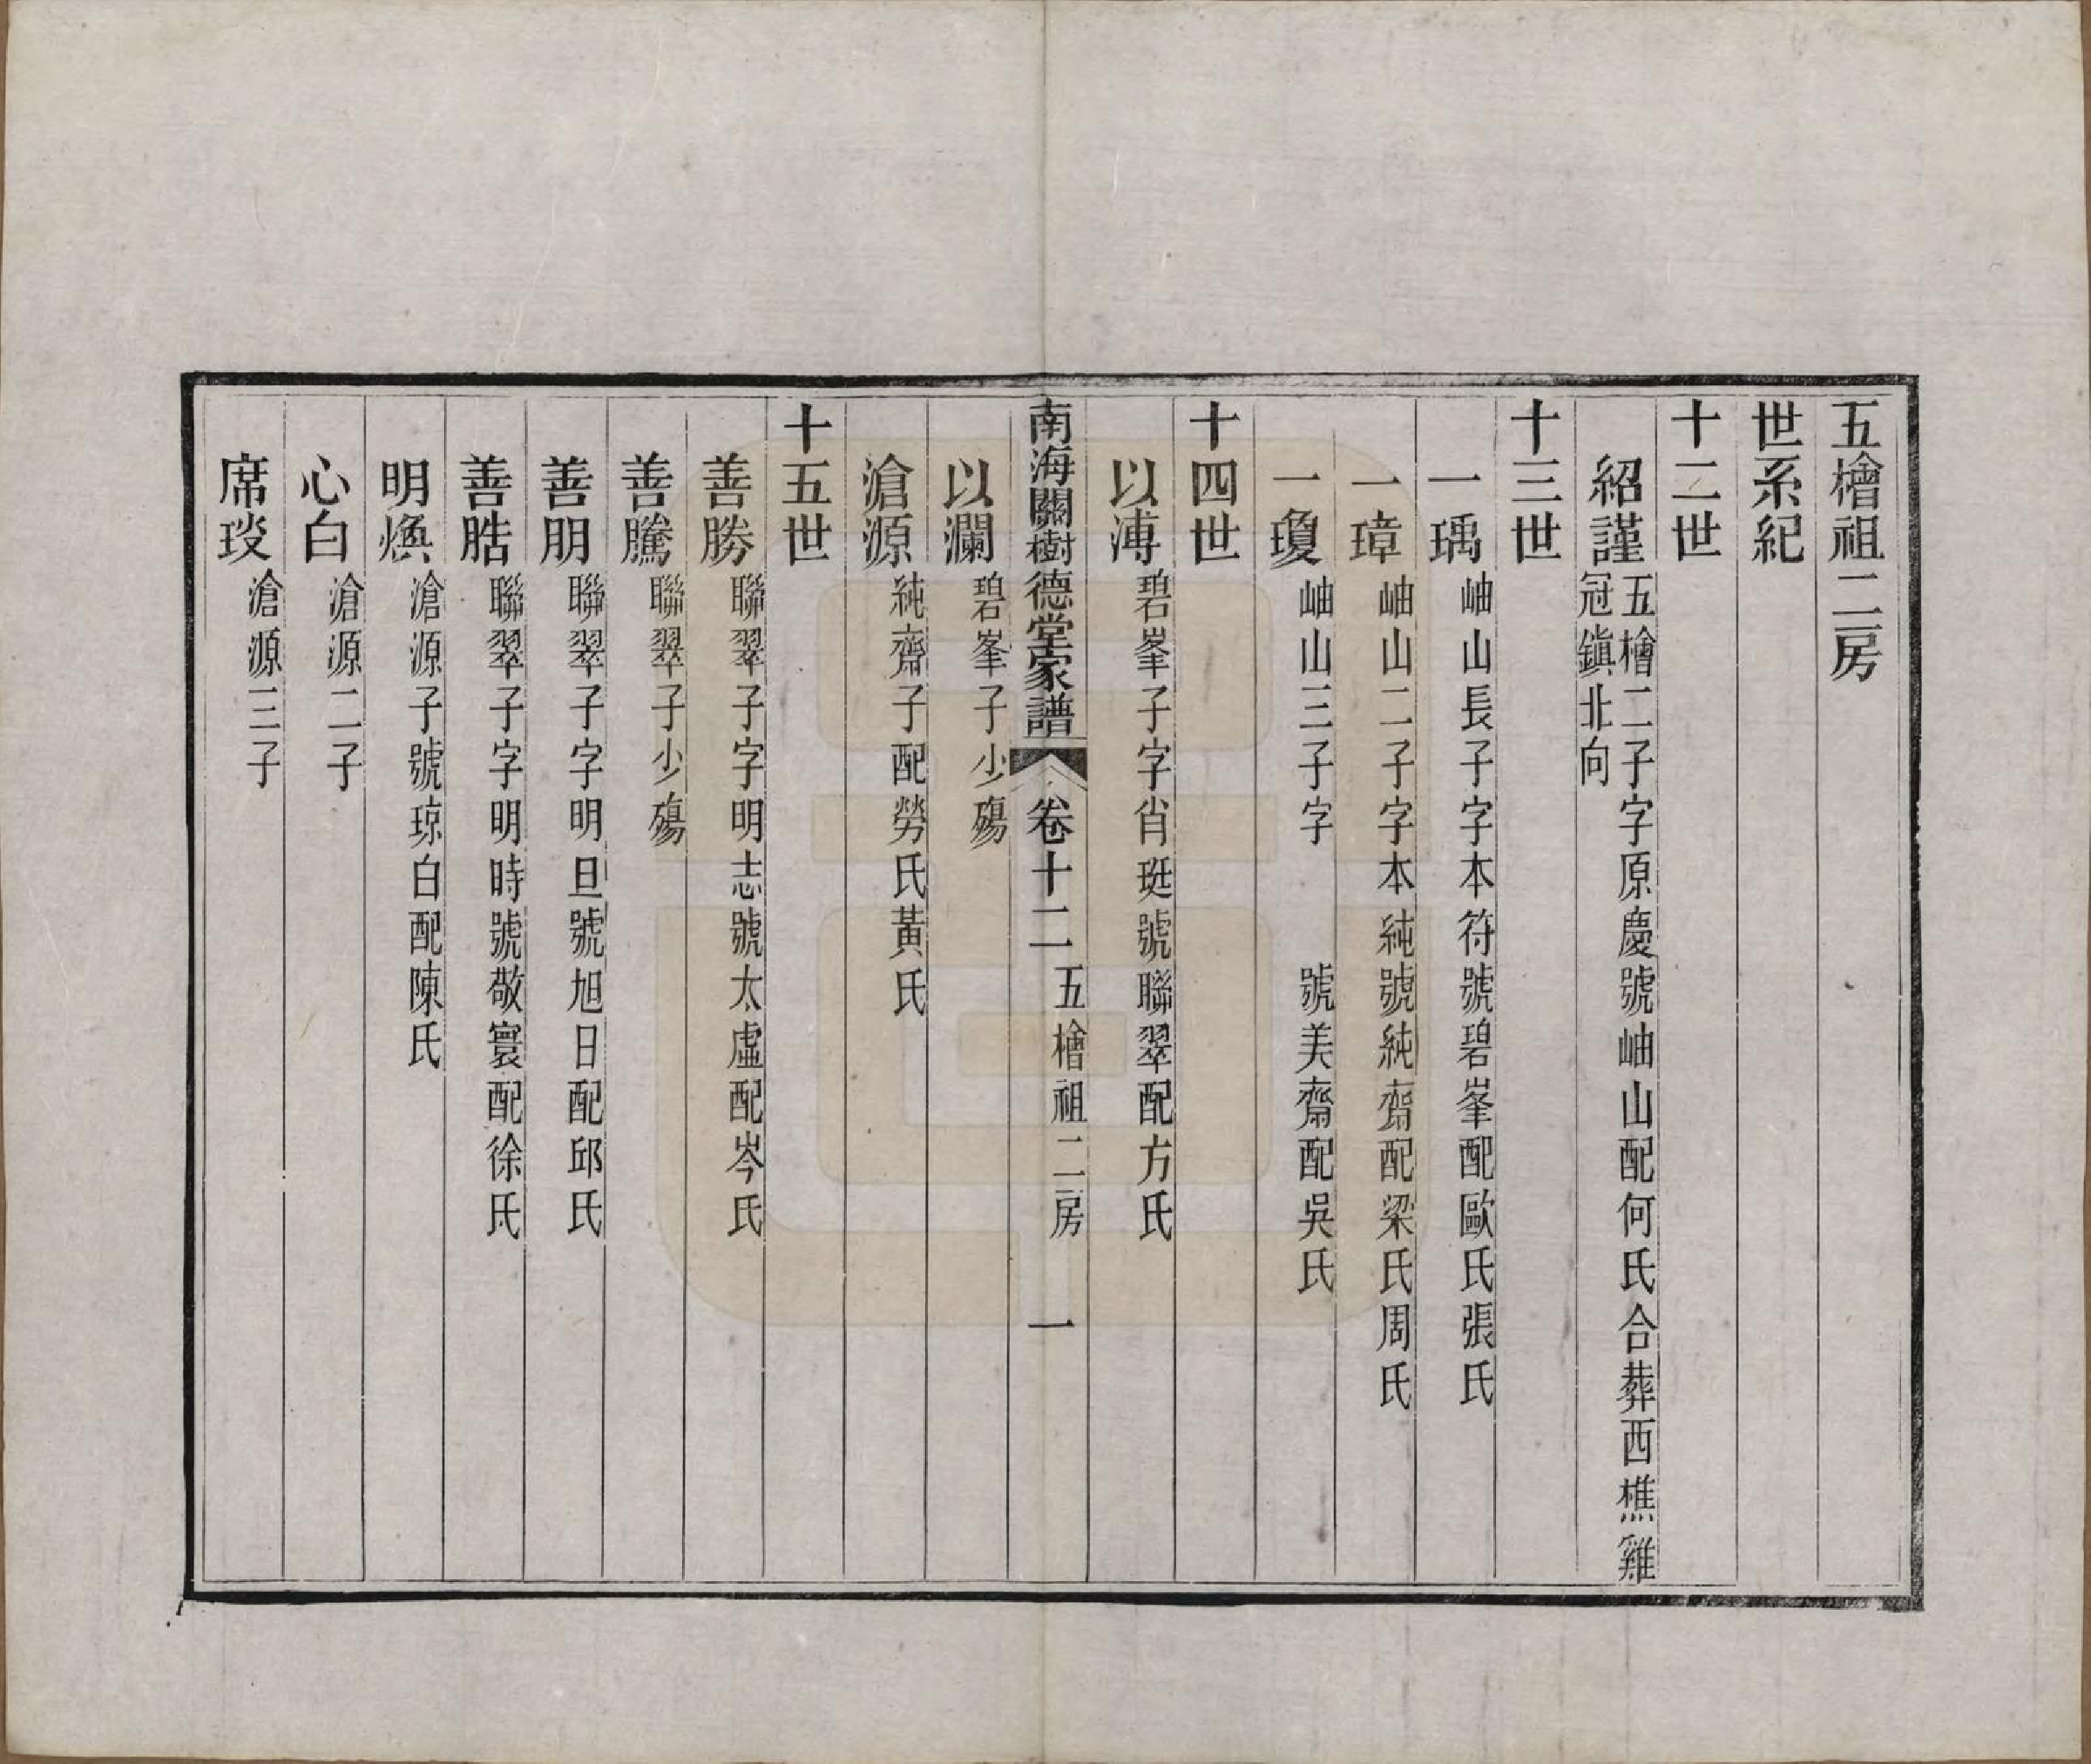 五檜祖二房
世系紀
十二世
紹謹 五檜二子字原慶號岫山配何氏合葬西樵雞
冠鎮北向
十三世
一瑀 岫山長子字本符號碧峯配歐氏張氏
一璋 岫山二子字本純號純齋配梁氏周氏
一瓊 岫山三子字 號美齋配吳氏
十四世
以溥 碧峯子字肖珽號聯翠配方氏
南海關樹德堂家譜 卷十二 五檜祖二房 一
以瀾 碧峯子少殤
滄源 純齋子配勞氏黃氏
十五世
善勝 聯翠子字明志號太虛配岑氏
善騰 聯翠子少殤
善朋 聯翠子字明旦號旭日配邱氏
善䏭 聯翠子字明時號敬寰配徐氏
明煥 滄源子號琼白配陳氏
心白 滄源二子
席琰 滄源三子